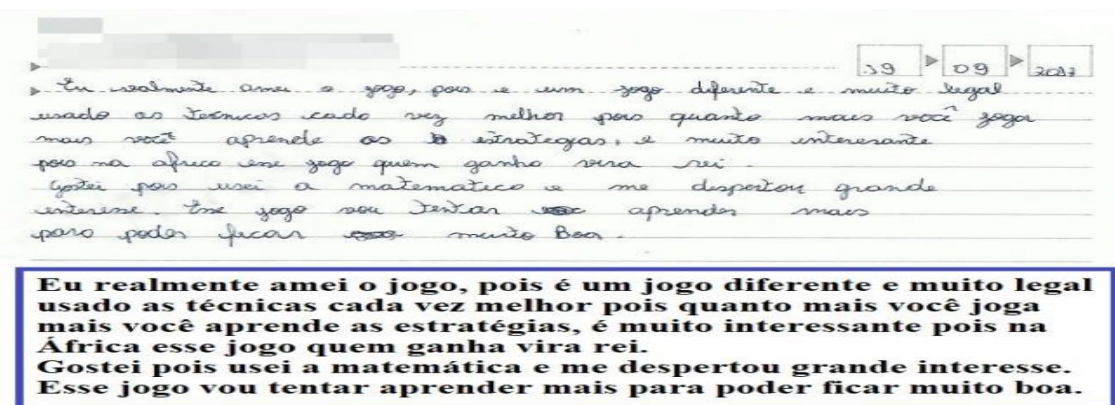 19 09 2017
Eu realmente amei o jogo, pois e um jogo diferente e muito legal
usado as tecnicas cada vez melhor pois quanto mais você joga
mais você aprende as estrategias, e muito interesante
pois na africa ese jogo quem ganha vira rei.
Gostei pois usei a matematica e me despertou grande
interese. Ese jogo vou tentar aprender mais
para poder ficar muito Boa.
Eu realmente amei o jogo, pois é um jogo diferente e muito legal
usado as técnicas cada vez melhor pois quanto mais você joga
mais você aprende as estratégias, é muito interessante pois na
África esse jogo quem ganha vira rei.
Gostei pois usei a matemática e me despertou grande interesse.
Esse jogo vou tentar aprender mais para poder ficar muito boa.